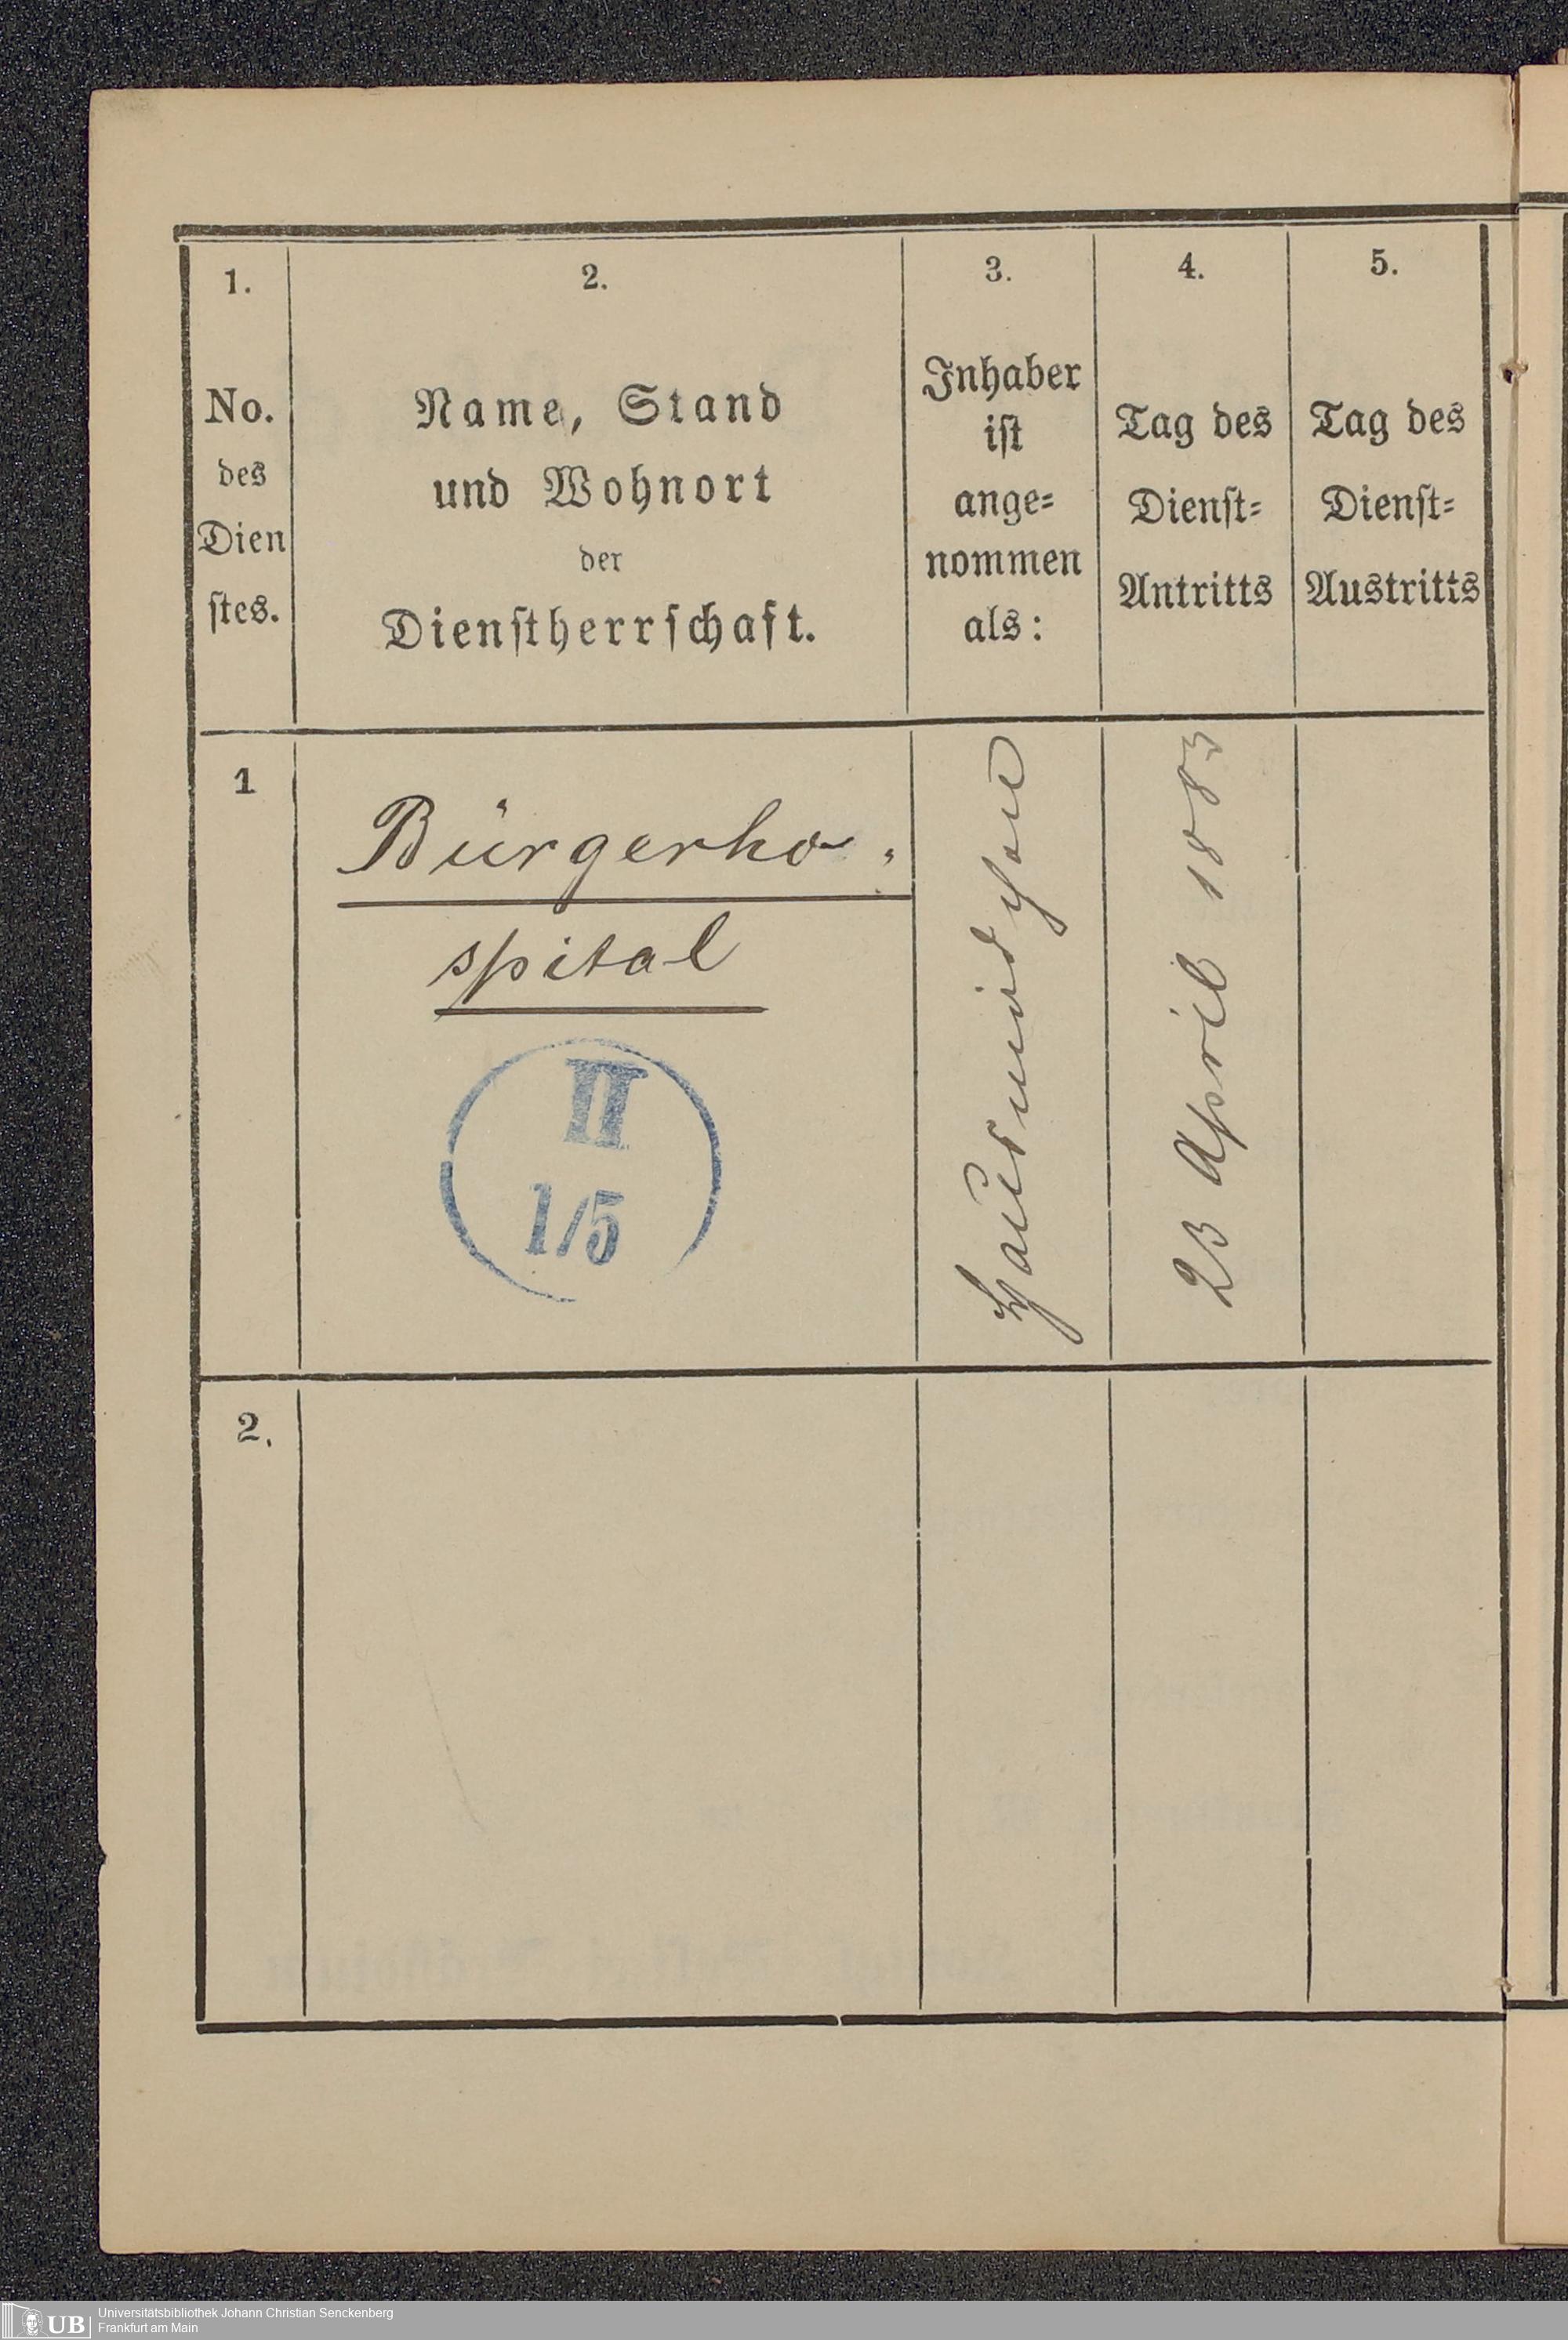 1.
2.
3.
4.
5.
No.
des
Dien
stes.
Name, Stand
und Wohnort
der
Dienstherrschaft.
Inhaber
ist
ange=
nommen
als:
Tag des
Dienst=
Antritts
Tag des
Dienst=
Austritts
1
Bürgerho-
spital
II
1/5
Hausmädchen
23 April 1883
2.
UB
Universitätsbibliothek Johann Christian Senckenberg
Frankfurt am Main